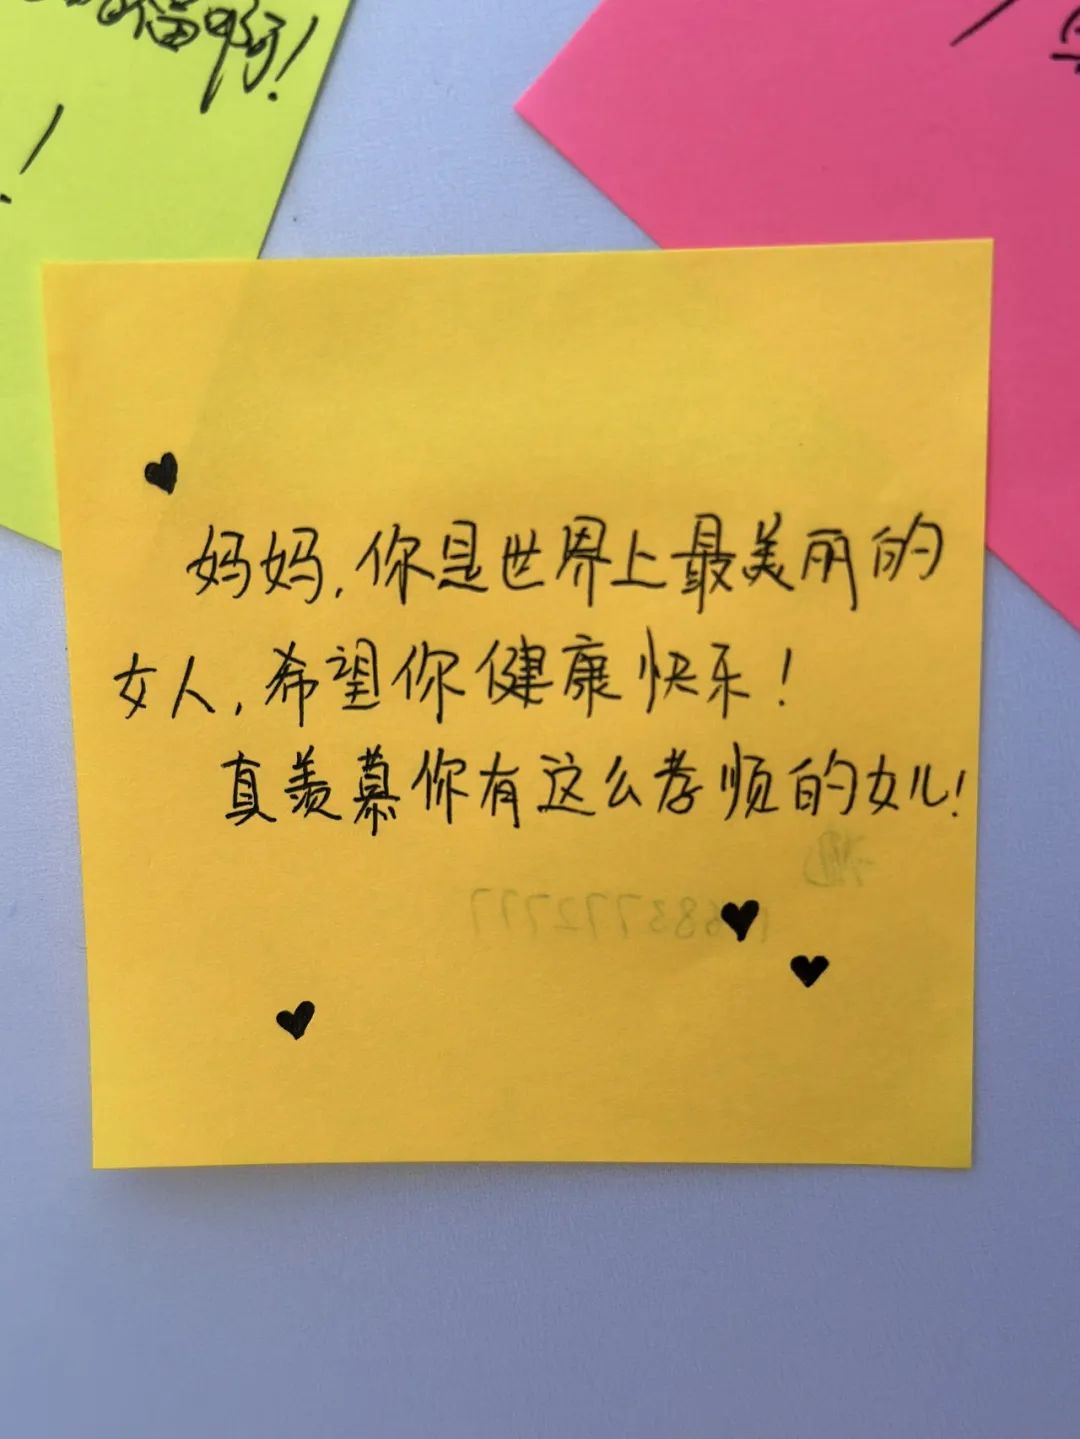 福啊!
!
妈妈,你是世界上最美丽的
女人,希望你健康快乐!
真羡慕你有这么孝顺的女儿!